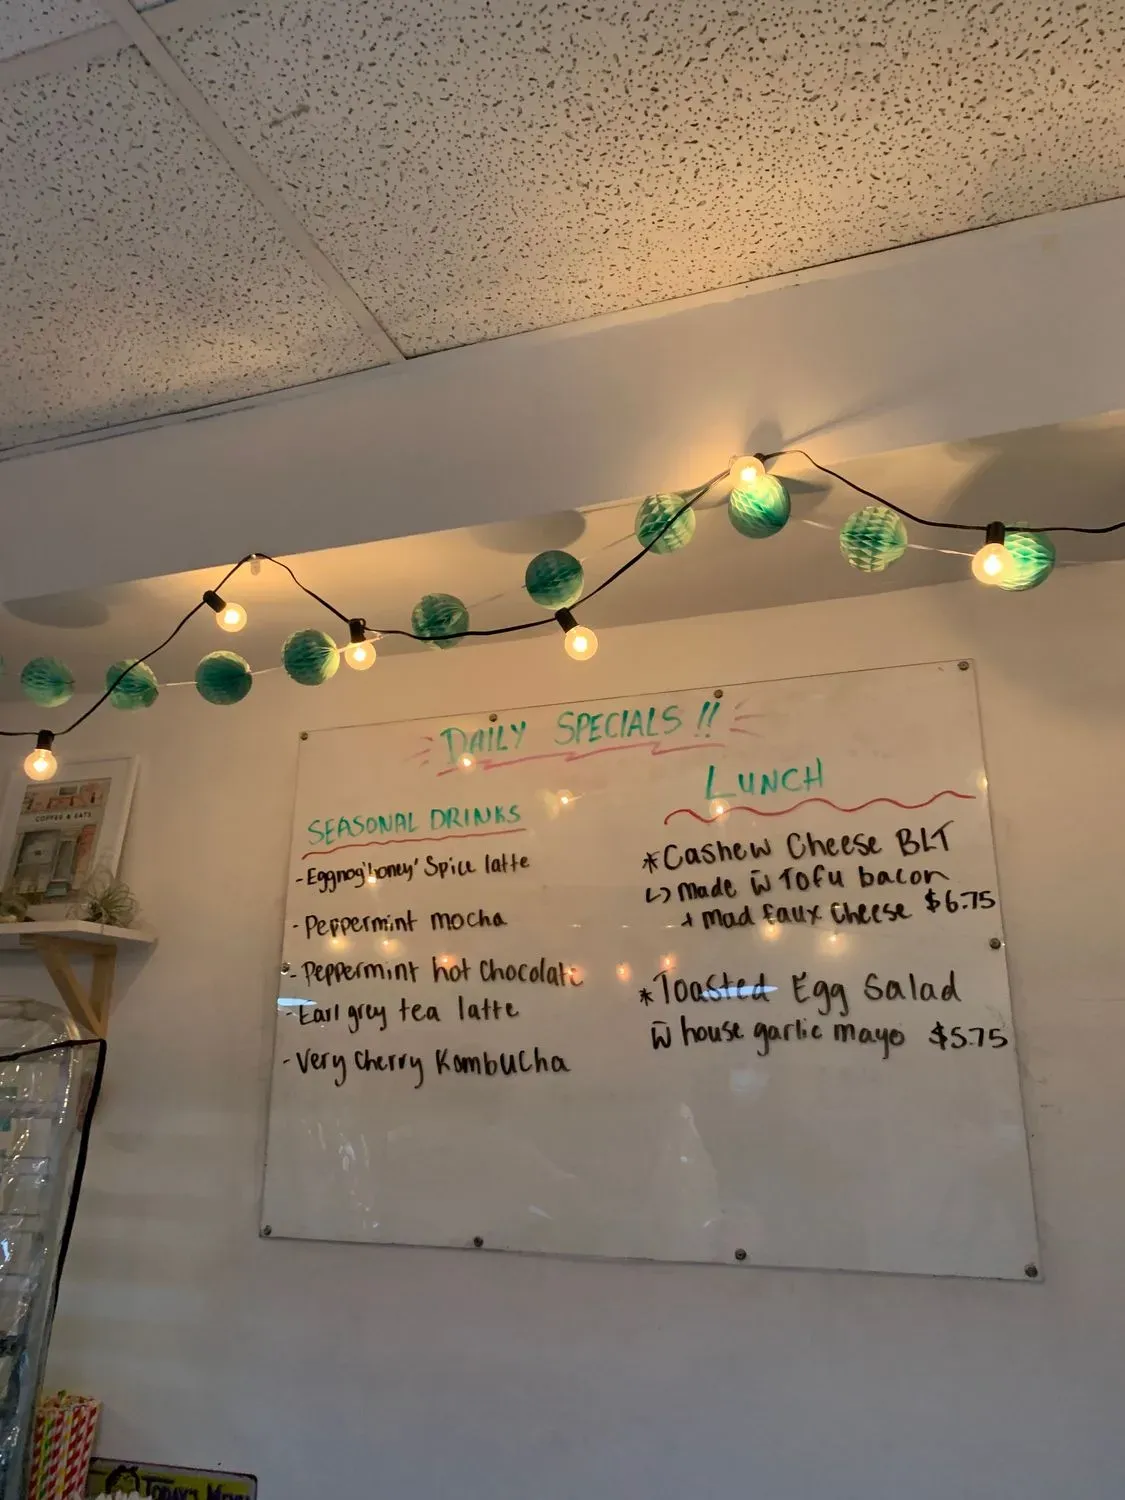 DAILY SPECIALS !!
SEASONAL DRINKS
- Eggnog 'honey' Spice latte
- Peppermint mocha
- Peppermint hot Chocolate
- Earl grey tea latte
- Very Cherry KombuCha
LUNCH
* Cashew Cheese BLT
↳ made w̄ Tofu bacon
+ mad faux Cheese $6.75
* Toasted Egg Salad
w̄ house garlic mayo $5.75
COFFEE & EATS
TODAY'S MENU